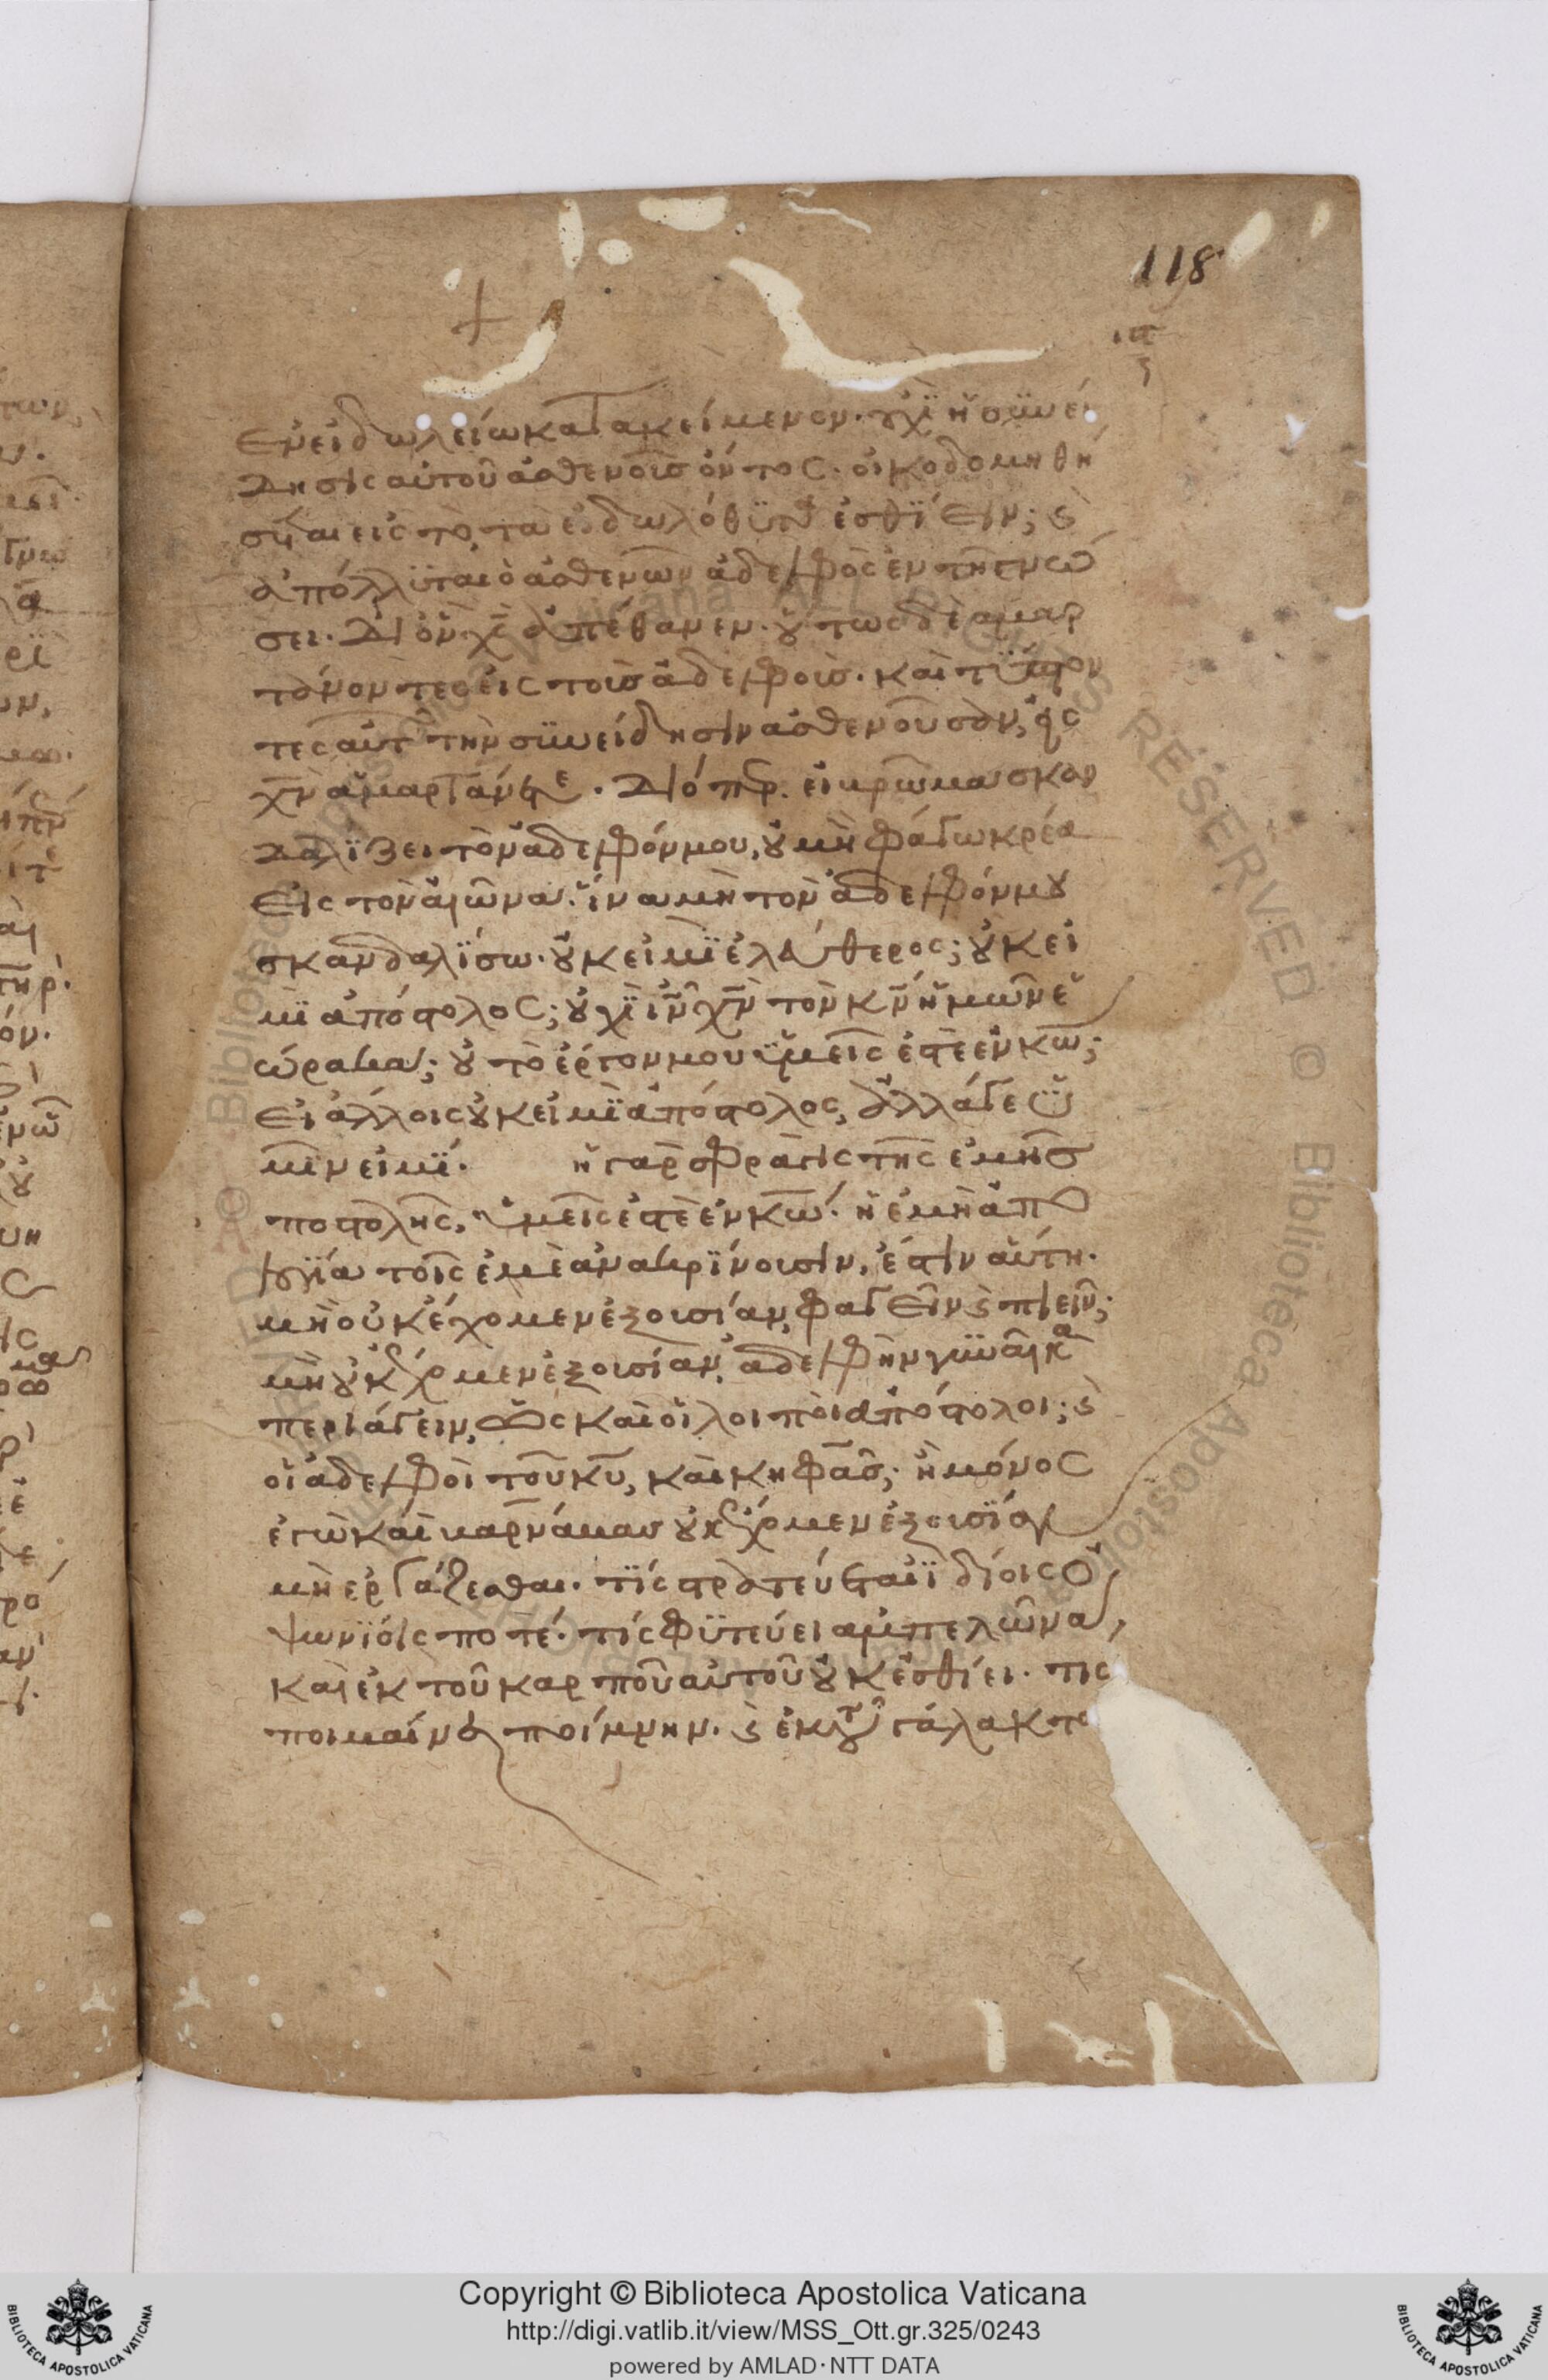 118
ἐν εἰδωλείω κατακείμενον· οὐχῒ ἡ συνεί
δησις αὐτοῦ ἀσθενοῦς ὄντος· οἰκοδομηθή
σεται εἰς τὸ, τὰ εἰδωλόθυτα ἐσθΐειν; καὶ
ἀπόλλϋται ὁ ἀσθενῶν ἀδελφὸς ἐν τῆ γνώ
σει· δι ὃν χς ἀπέθανεν· οὕτως δὲ ἁμαρ
τάνοντες εἰς τοὺς ἀδελφοὺς· καὶ τύπτον
τες αὐτ τὴν συνείδησιν ἀσθενοῦσαν, εἰς
χν ἁμαρτάνετε· διό περ εἰ βρῶμα σκαν
δαλΐζει τὸν ἀδελφόν μου, οὐ μὴ φάγω κρέα
εἰς τὸν αἰῶνα· ἵνα μὴ τὸν ἀδελφόν μου
σκανδαλΐσω· οὐκ εἰμῒ ἐλεύθερος; οὐκ εἰ
μῒ ἀπόστολος; οὐχῒ ιν χν τὸν κν ἡμῶν ἑ
ώρακα; οὐ τὸ ἔργον μου ὑμεῖς ἐστὲ ἐν κω;
εἰ ἄλλοις οὐκ εἰμῒ ἀπόστολος, ἀλλάγε ὑ
μῖν εἰμΐ· ἡ γὰρ σφραγὶς τῆς ἐμῆς
ποστολῆς, ὑμεῖς ἐστὲ ἐν κω· ἡ ἐμὴ ἀπο
λογΐα τοῖς ἐμὲ ἀνακρΐνουσιν, ἐστὶν αὕτη·
μὴ οὐκ ἔχομεν ἐξουσίαν, φαγεῖν καὶ πιεῖν;
μὴ οὐκ ἔχομεν ἐξουσίαν, ἀδελφὴν γυναῖκα
περιάγειν, ὡς καὶ οἱ λοιποὶ ἀπόστολοι; καὶ
οἱ ἀδελφοὶ τοῦ κυ, καὶ κηφᾶς; ἢ μόνος
ἐγὼ καὶ βαρνάβας οὐκ ἔχομεν ἐξουσΐαν
μὴ ἐργάζεσθαι· τΐς στρατεύεται ἰδΐοις ὀ
ψωνΐοις ποτέ· τίς φϋτεύει ἀμπελῶνα,
καὶ ἐκ τοῦ καρποῦ αὐτοῦ οὐκ ἐσθίει· τις
ποιμαίνει ποίμνην· καὶ ἐκ τοῦ γάλακτο
Copyright © Biblioteca Apostolica Vaticana
http://digi.vatlib.it/view/MSS_Ott.gr.325/0243
powered by AMLAD·NTT DATA